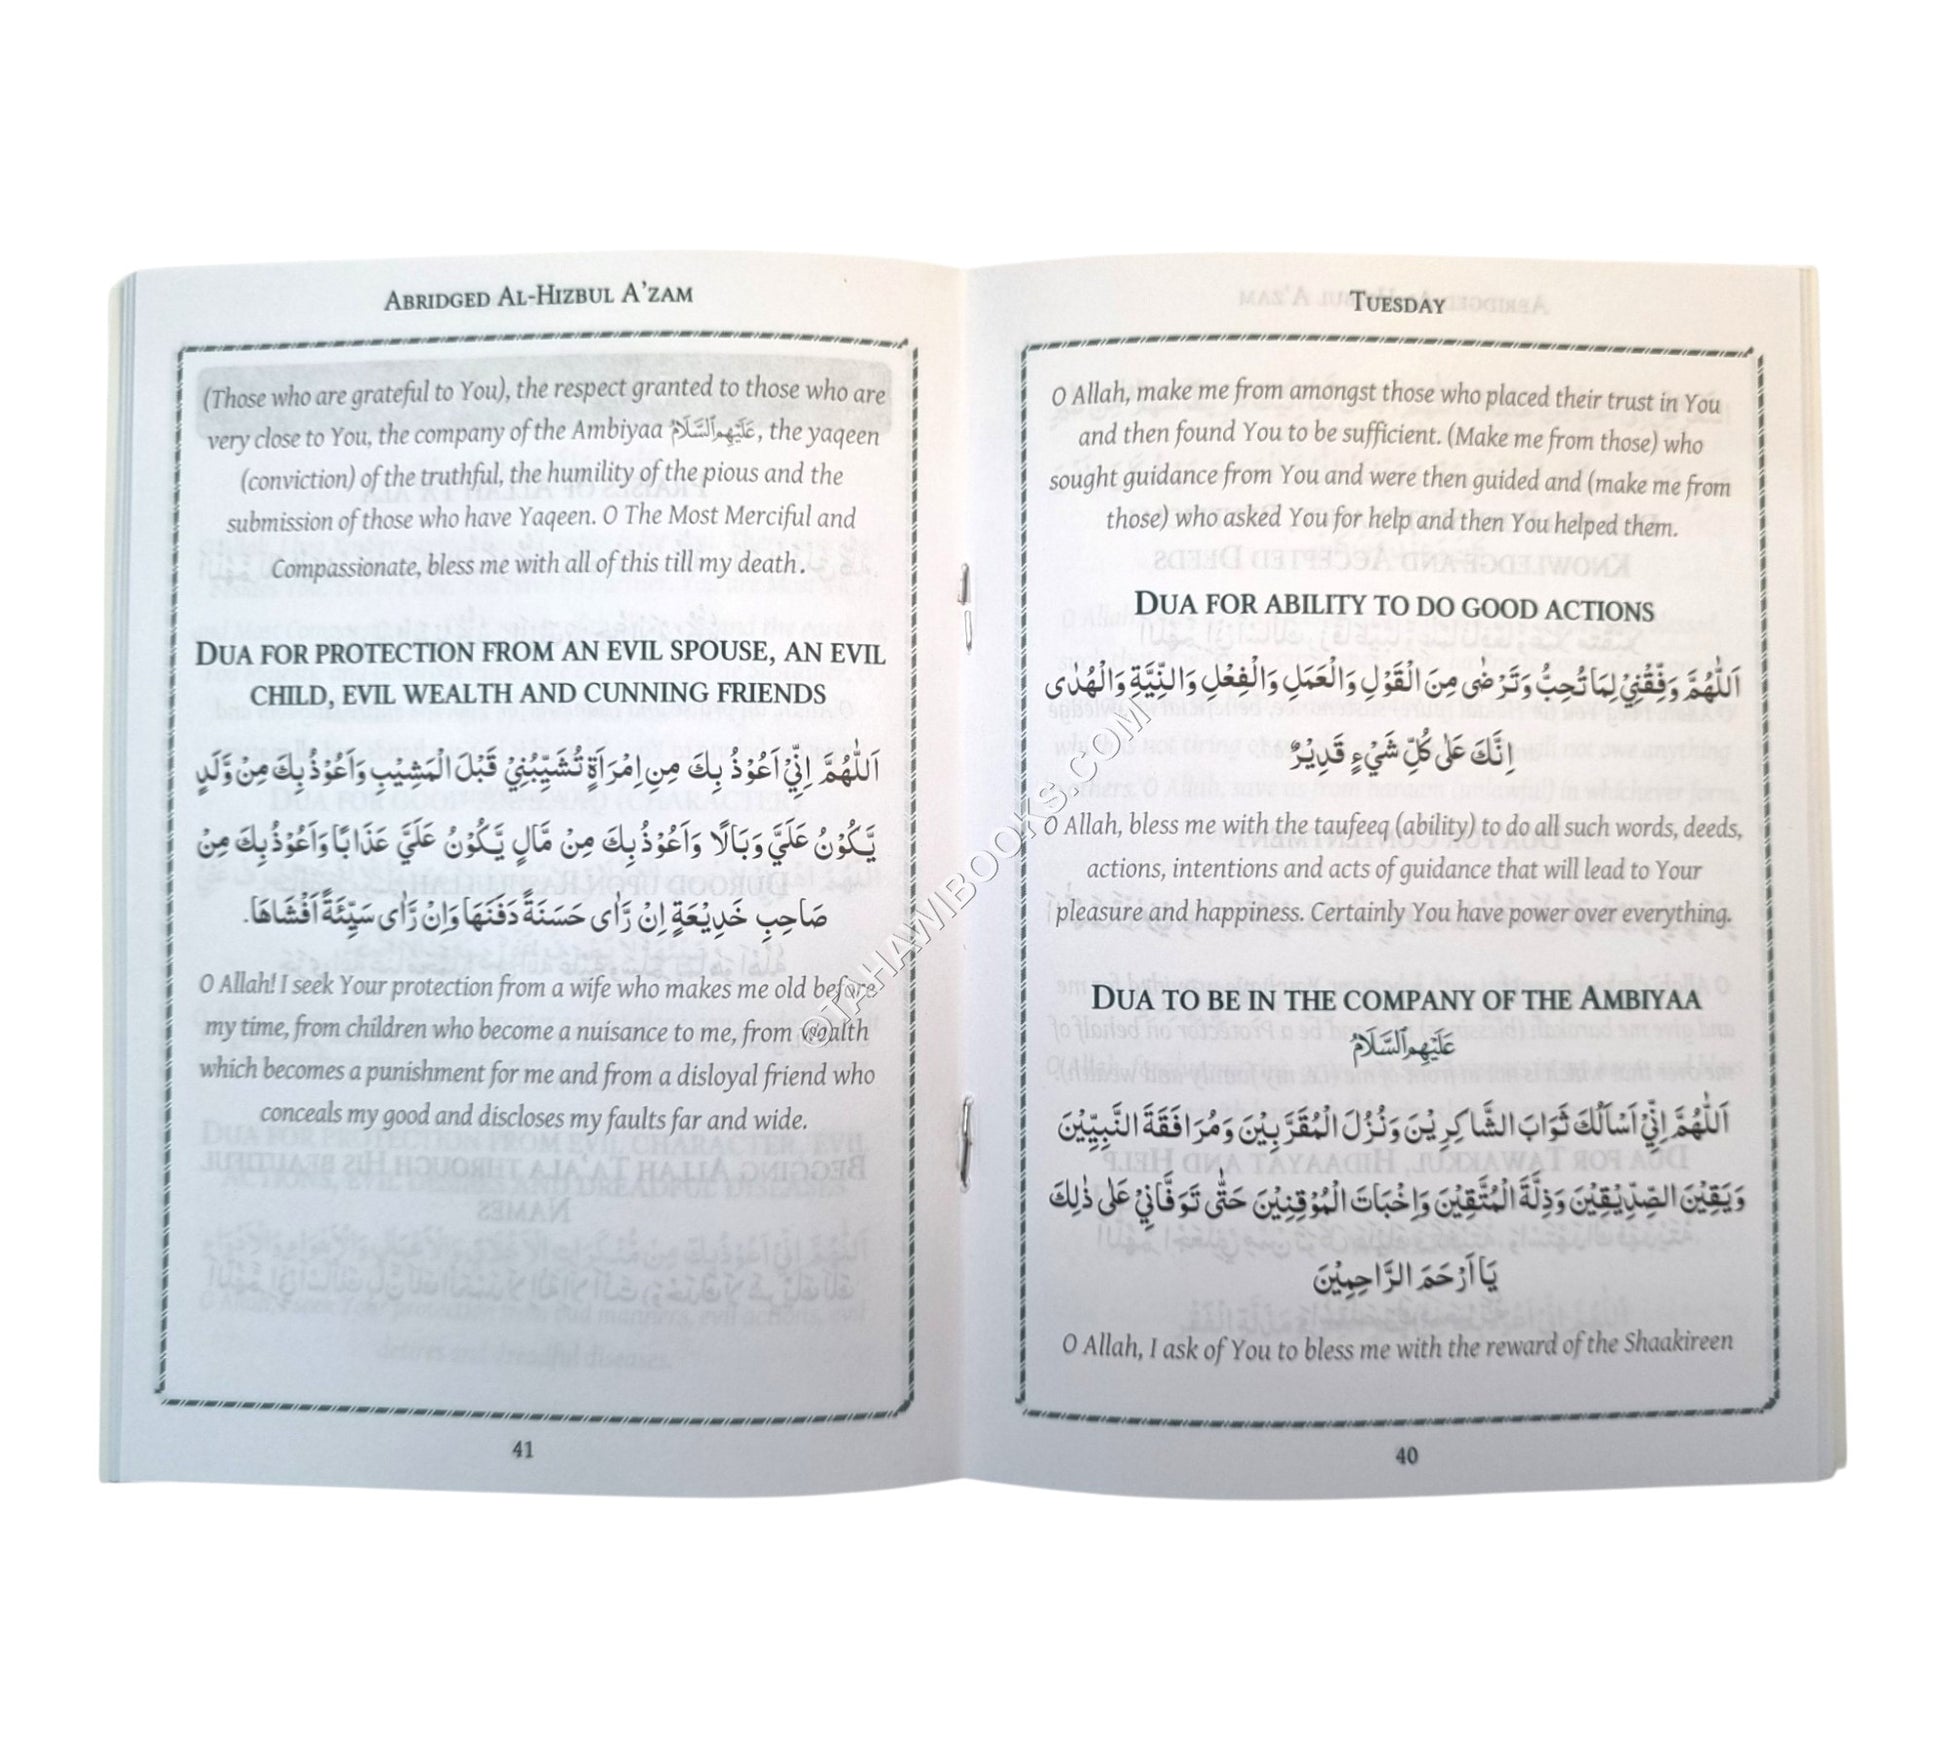 TUESDAY
O Allah, make me from amongst those who placed their trust in You
and then found You to be sufficient. (Make me from those) who
sought guidance from You and were then guided and (make me from
those) who asked You for help and then You helped them.
DUA FOR ABILITY TO DO GOOD ACTIONS
اَللّٰهُمَّ وَفِّقْنِيْ لِمَا تُحِبُّ وَتَرْضٰى مِنَ الْقَوْلِ وَالْعَمَلِ وَالْفِعْلِ وَالنِّيَّةِ وَالْهُدٰى
اِنَّكَ عَلٰى كُلِّ شَيْءٍ قَدِيْرٌ
O Allah, bless me with the taufeeq (ability) to do all such words, deeds,
actions, intentions and acts of guidance that will lead to Your
pleasure and happiness. Certainly You have power over everything.
DUA TO BE IN THE COMPANY OF THE AMBIYAA
عَلَيْهِمُ السَّلَامُ
اَللّٰهُمَّ اِنِّيْ اَسْاَلُكَ ثَوَابَ الشَّاكِرِيْنَ وَنُزُلَ الْمُقَرَّبِيْنَ وَمُرَافَقَةَ النَّبِيِّيْنَ
وَيَقِيْنَ الصِّدِّيْقِيْنَ وَذِلَّةَ الْمُتَّقِيْنَ وَاِخْبَاتَ الْمُوْقِنِيْنَ حَتّٰى تَوَفَّانِيْ عَلٰى ذٰلِكَ
يَا اَرْحَمَ الرَّاحِمِيْنَ
O Allah, I ask of You to bless me with the reward of the Shaakireen
40
ABRIDGED AL-HIZBUL A'ZAM
(Those who are grateful to You), the respect granted to those who are
very close to You, the company of the Ambiyaa عَلَيْهِمُ السَّلَامُ, the yaqeen
(conviction) of the truthful, the humility of the pious and the
submission of those who have Yaqeen. O The Most Merciful and
Compassionate, bless me with all of this till my death.
DUA FOR PROTECTION FROM AN EVIL SPOUSE, AN EVIL
CHILD, EVIL WEALTH AND CUNNING FRIENDS
اَللّٰهُمَّ اِنِّيْ اَعُوْذُ بِكَ مِنِ امْرَاَةٍ تُشَيِّبُنِيْ قَبْلَ الْمَشِيْبِ وَاَعُوْذُ بِكَ مِنْ وَّلَدٍ
يَّكُوْنُ عَلَيَّ وَبَالًا وَاَعُوْذُ بِكَ مِنْ مَّالٍ يَّكُوْنُ عَلَيَّ عَذَابًا وَاَعُوْذُ بِكَ مِنْ
صَاحِبِ خَدِيْعَةٍ اِنْ رَّاٰى حَسَنَةً دَفَنَهَا وَاِنْ رَّاٰى سَيِّئَةً اَفْشَاهَا.
O Allah! I seek Your protection from a wife who makes me old before
my time, from children who become a nuisance to me, from wealth
which becomes a punishment for me and from a disloyal friend who
conceals my good and discloses my faults far and wide.
41
©TAHAWIBOOKS.COM